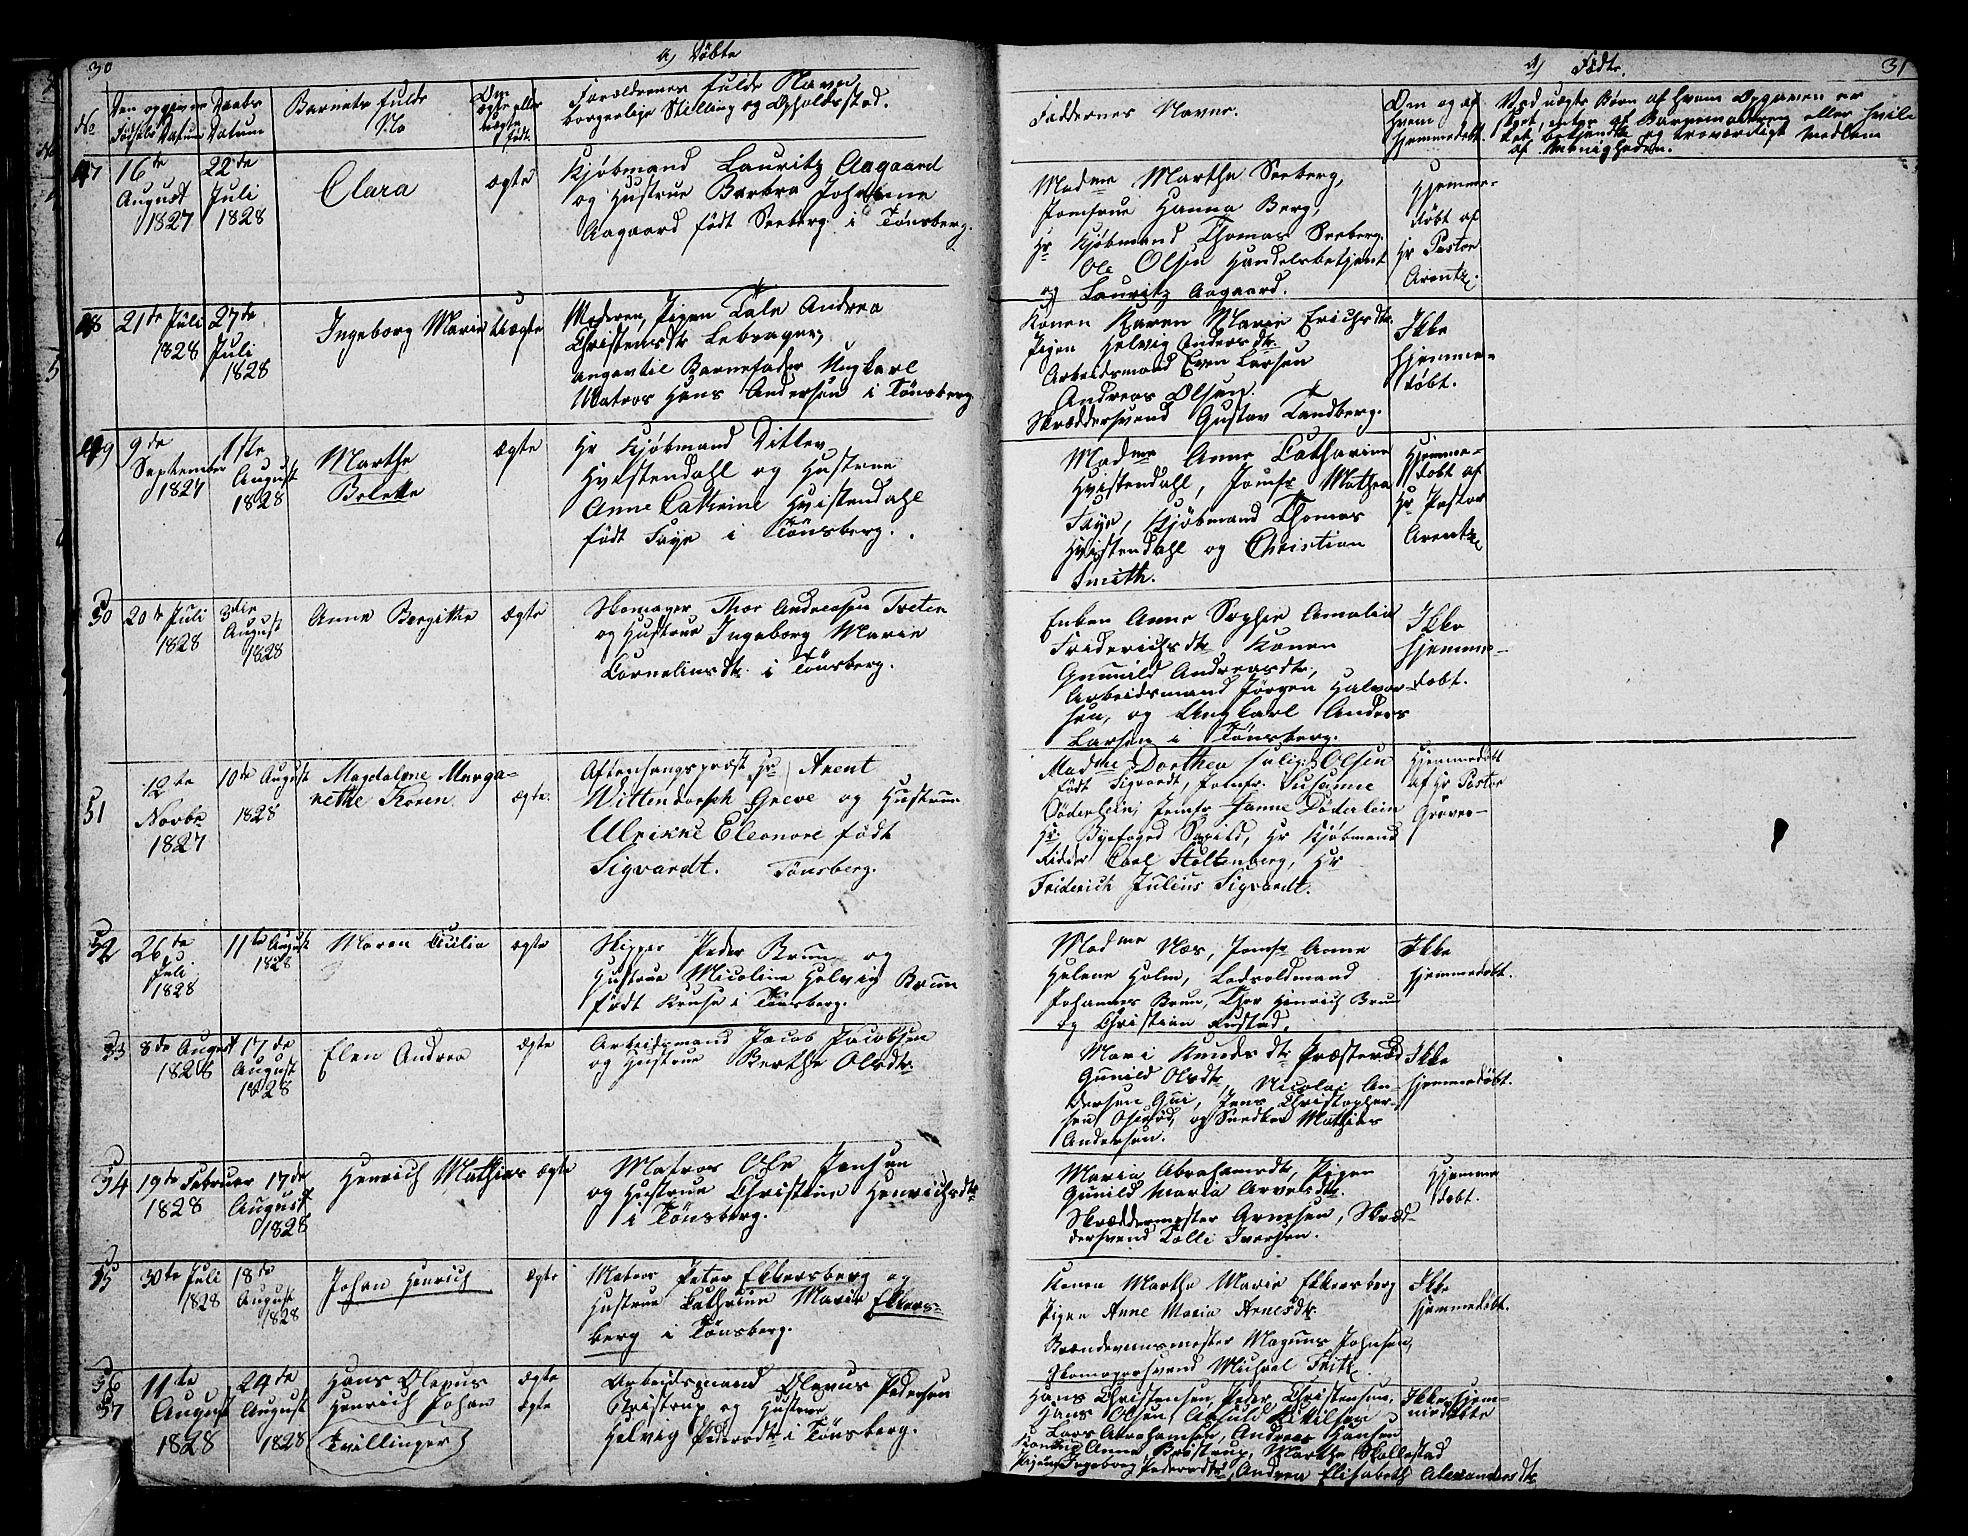 30
a) Døbte
No
Den opgivne Fødsels Datum
Daabs Datum
Barnets fulde
No
Om ægte eller uægte født.
Forældrenes fulde Navne
borgerlige Stilling og Opholdssted.
47
16de
August
1827
22de
Juli
1828
Clara
ægte
Kjøbmand Lauritz Aagaard
og Hustrue Barbra Johanne
Aagaard født Seeberg i Tønsberg.
48
21de Juli
1828
27de
Juli
1828
Ingeborg Marie
Uægte
Moderen, Pigen Tale Andrea
Christensdtr
angav til Barnefader Ungkarl
Matros Hans Andersen i Tønsberg
49
9de
September
1827
1ste
August
1828
Marthe
Bolette
ægte
Hr Kjøbmand Ditlev
Hvistendahl og Hustrue
Anne Cathrine Hvistendahl
født Faye i Tønsberg.
50
20de Juli
1828
3die
August
1828
Anne Bergithe
ægte
Skomager Thor Andreasen Tveten
og Hustrue Ingeborg Marie
Corneliusdtr. i Tønsberg.
51
12te
Novbr
1827
10de August
1828
Magdalene Marga-
rethe Koren
ægte.
Aftensangspræst Hr Arent
Wittendorph Greve og Hustrue
Ulrikke Eleonore født
Sigvardt. Tønsberg.
52
26de
Juli
1828
11te August
1828
Maren Cicilia
ægte
Skipper Peder Brun og
Hustrue Nicoline Helvig Brun
født Kruse i Tønsberg.
53
8de August
1828
17de
August
1828
Elen Andrea
ægte
Arbeidsmand Jacob Jacobsen
og Hustrue Berthe Olsdtr.
54
19de Februar
1828
17de
August
1828
Henrich Mathias
ægte
Matros Ole Jensen
og Hustrue Christine Henrichsdtr
i Tønsberg.
55
30te Juli
1828
18de
August
1828
Johan Henrich
ægte
Matros Peter Ekkersberg og
Hustrue Cathrine Marie Ekkers-
berg i Tønsberg.
56
57
11te
August
1828
24de
August
1828
Hans Olevus
Henrich Johan
Tvillinger
ægte
ægte
Arbeidsmand Olevus Pedersen
Bristrup og Hustrue
Helvig Pedersdtr i Tønsberg.
a) Fødte.
31
Faddernes Navne.
Om og af
hvem
hjemmedøbt.
Ved uægte Børn af hvem Opgaven er
skeet, enten af Barnemoderen eller hvilket
bekjendt og troværdigt Medlem
af Menigheden.
Madme Marthe Seeberg,
Jomfrue Hanna Berg,
Hr Kjøbmand Thomas Seeberg
Ole Olsen Handelsbetjent
og Lauritz Aagaard.
Hjemme-
døbt af
Hr Pastor
Arentz.
Konen Karen Marie Erichsdtr
Pigen Helvig Andersdtr.
Arbeidsmand Even Larsen
Andreas Olsen.
Skræddersvend Gustav Tandberg.
Ikke
hjemme-
døbt.
Madme Anne Catharine
Hvistendahl, Jomfr Mathea
Faye, Kjøbmand Thomas
Hvistendahl og Christian
Smith.
Hjemme-
døbt af
Hr Pastor
Arentz
Enken Anne Sophie Amalia
Friderichsdtr Konen
Gunnild Andreasdtr,
Arbeidsmand Jørgen Halvor-
sen, og Ungkarl Anders
Larsen i Tønsberg.
Ikke
hjemme-
døbt.
Madme Dorthea Julie Olsen
født Sigvardt, Jomfr. Susanne
Døderlein, Jomfr Hanne Døderlein
Hr Byefoged Saxild, Hr Kjøbmand
Ridder Carl Stoltenberg, Hr
Friderich Julius Sigvardt.
Hjemmedøbt
af Hr Pastor
Greve
Madme Næs, Jomfr Anne
Helene Holm,
Johannes Brun, Thor Henrich Brun
og Christian Fustad.
Ikke
hjemmedøbt.
Mari Knudsdtr Præsterød
Gunild Olsdtr, Nicolai An-
dersen Gui, Jens Christopher-
sen Olsrød, og Snedker Mathias
Andersen.
Ikke
hjemmedøbt.
Maria Abrahamsdtr, Pigen
Gunild Maria Arvesdtr.
Skræddermester Arnesen, Skræd-
dersvend Tolli Iversen.
Hjemme
døbt.
Konen Marthe Marie Ekkersberg
Pigen Anne Maria Arnesdtr.
Brændeviinsmester Magnus Johnsen,
Skomagersvend Michael Fritz.
Ikke
hjemmedøbt.
Hans Christensen, Peder Christensen,
Hans Olsen,
Lars Abrahamsen, Andreas Hansen
Konerne Anne Bristrup, Marthe Skallestad
Pigen Ingeborg Pedersdtr, Andrea Elisabeth Alexandersdtr
Ikke hjem-
medøbte